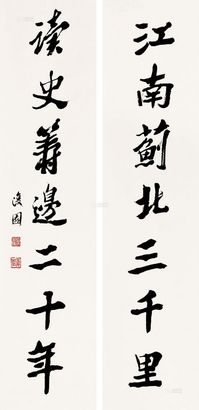 江南蓟北三千里
读史筹边二十年